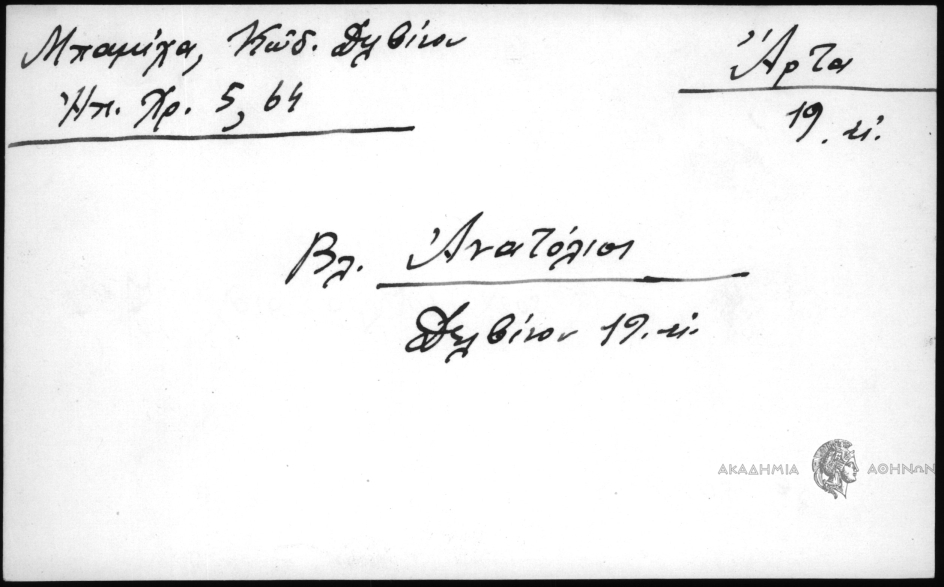 Μπαμίχα, Κώδ. Δελβίνου
Ἠπ. Χρ. 5, 64
Ἄρτα
19. αἰ.
Βλ. Ἀνατόλιοι
Δελβίνου 19. αἰ.
ΑΚΑΔΗΜΙΑ ΑΘΗΝΩΝ